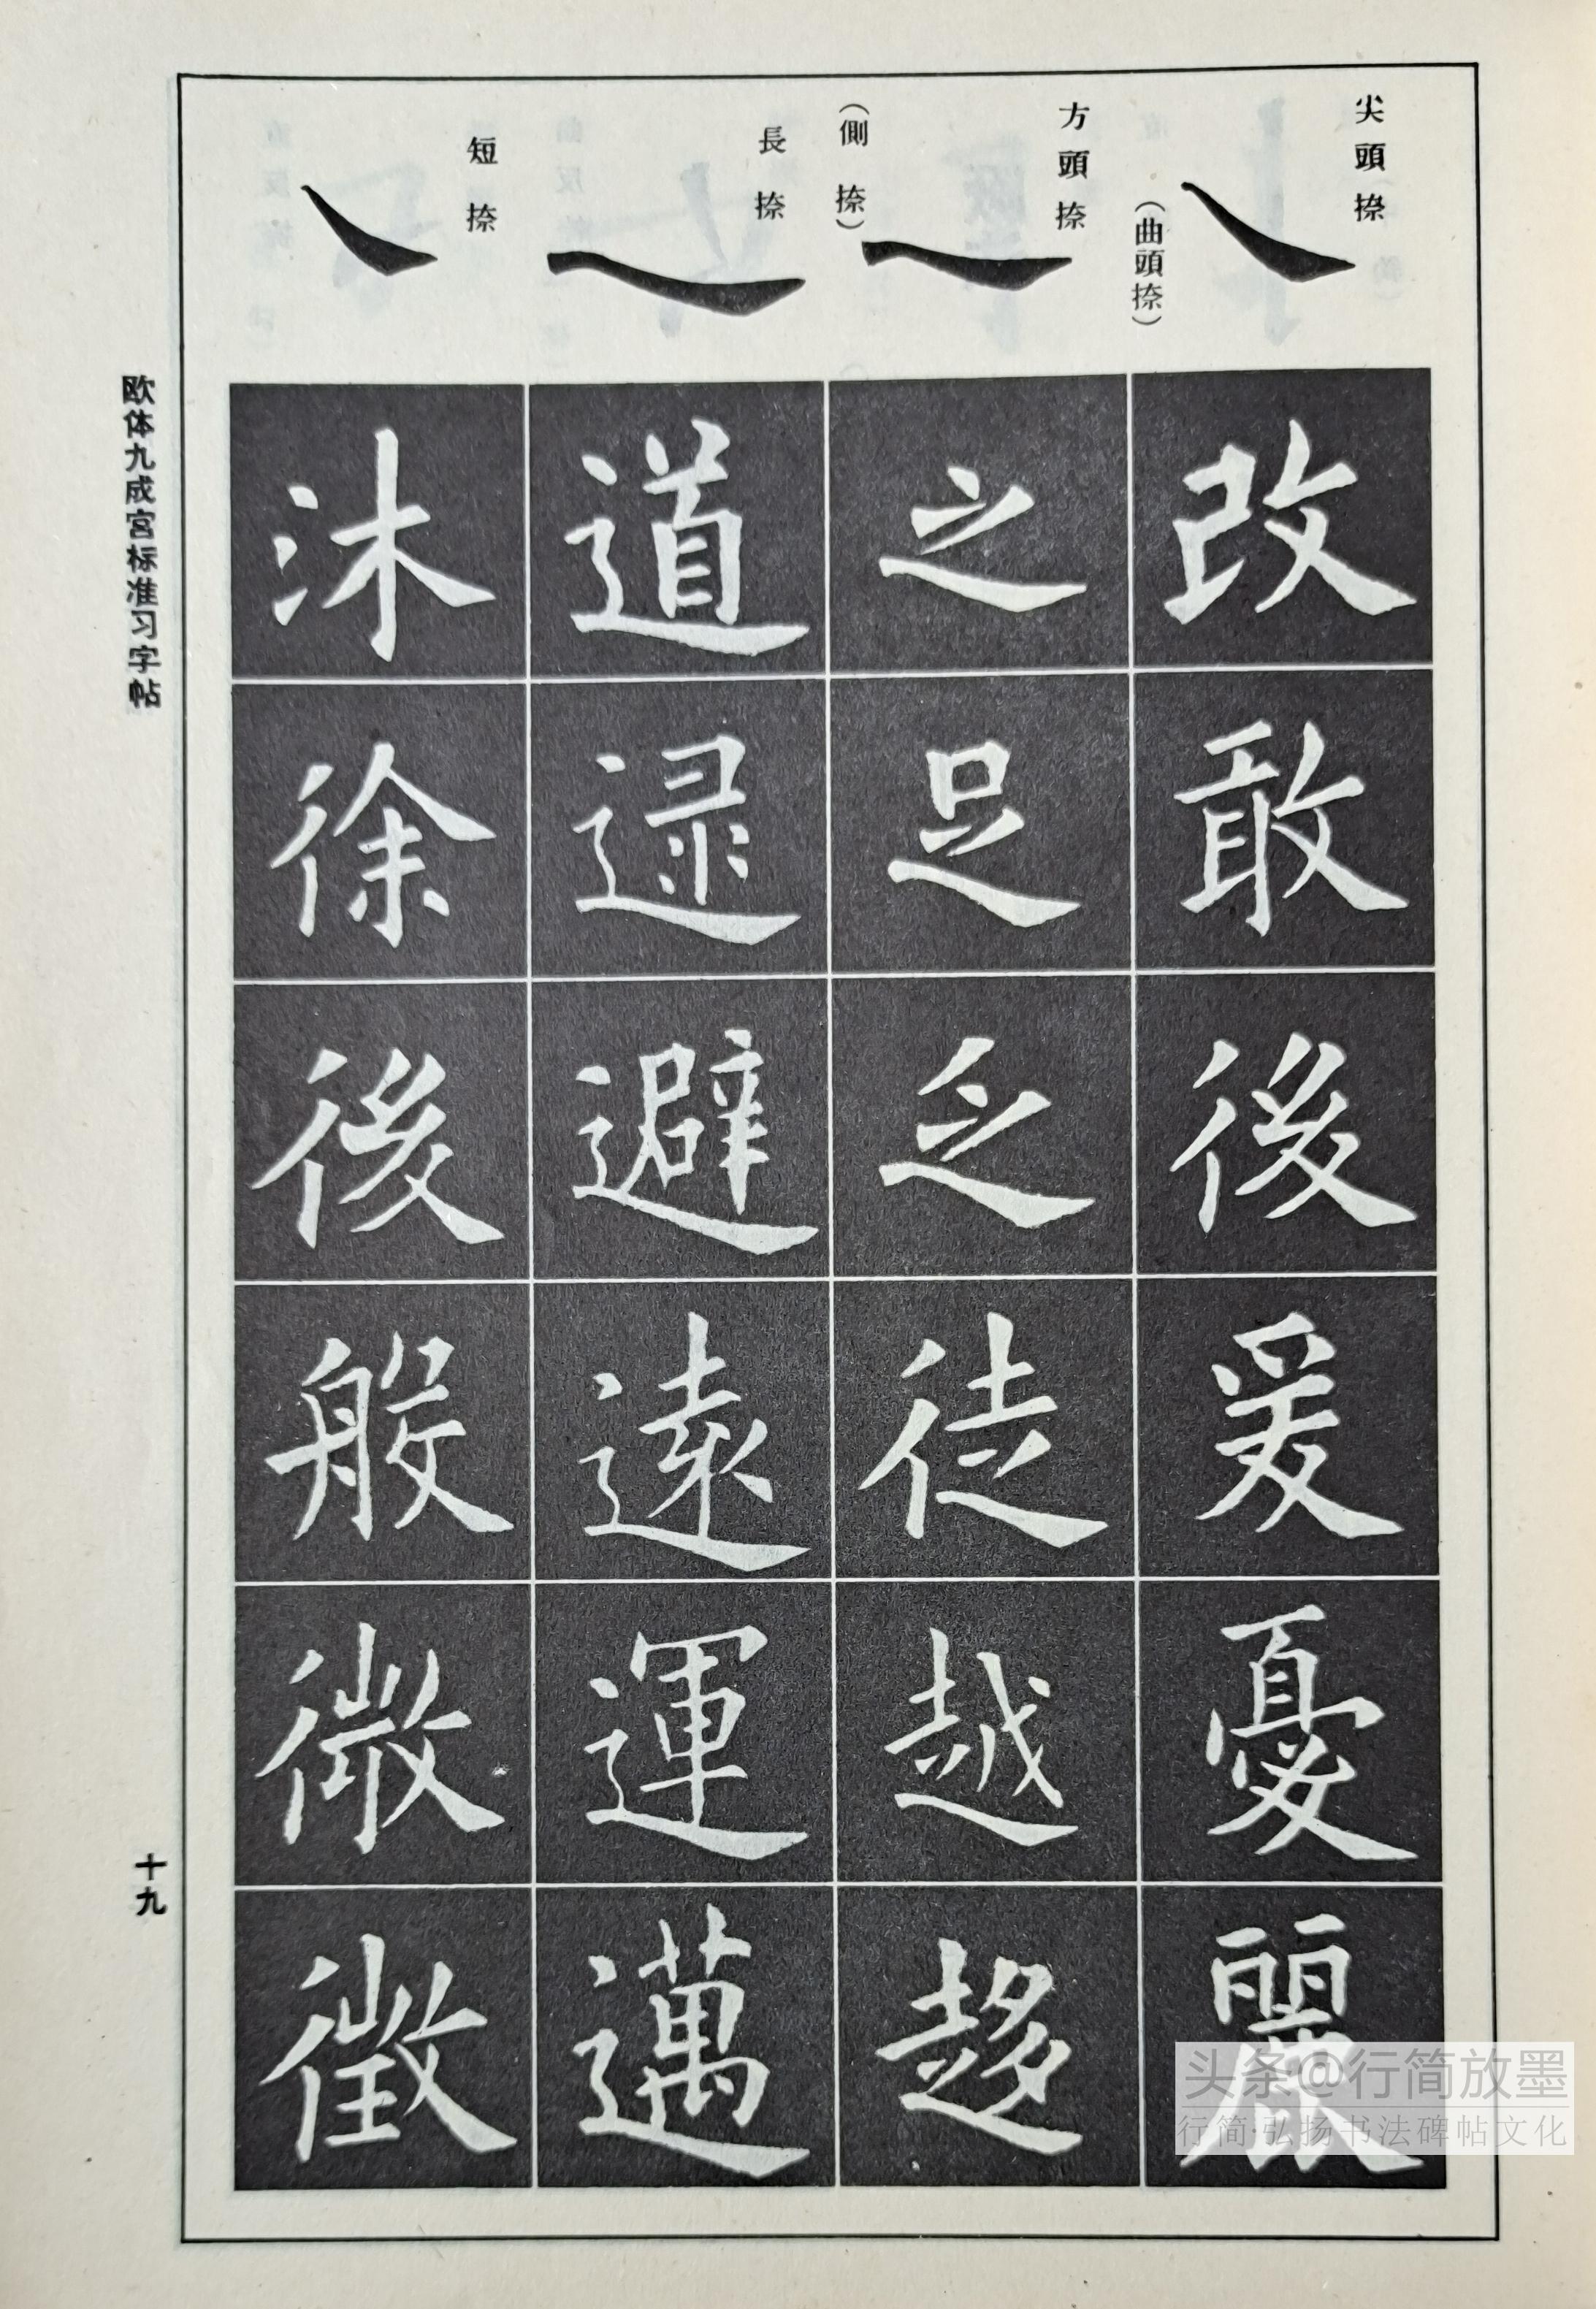 尖頭捺
(曲頭捺)
改敢後爰憂麗
方頭捺
(側捺)
之足乏徒越趍
長捺
道逯避遠運邁
短捺
沐徐後般微徵
欧体九成宫标准习字帖
十九
头条@行简放墨
行简·弘扬书法碑帖文化